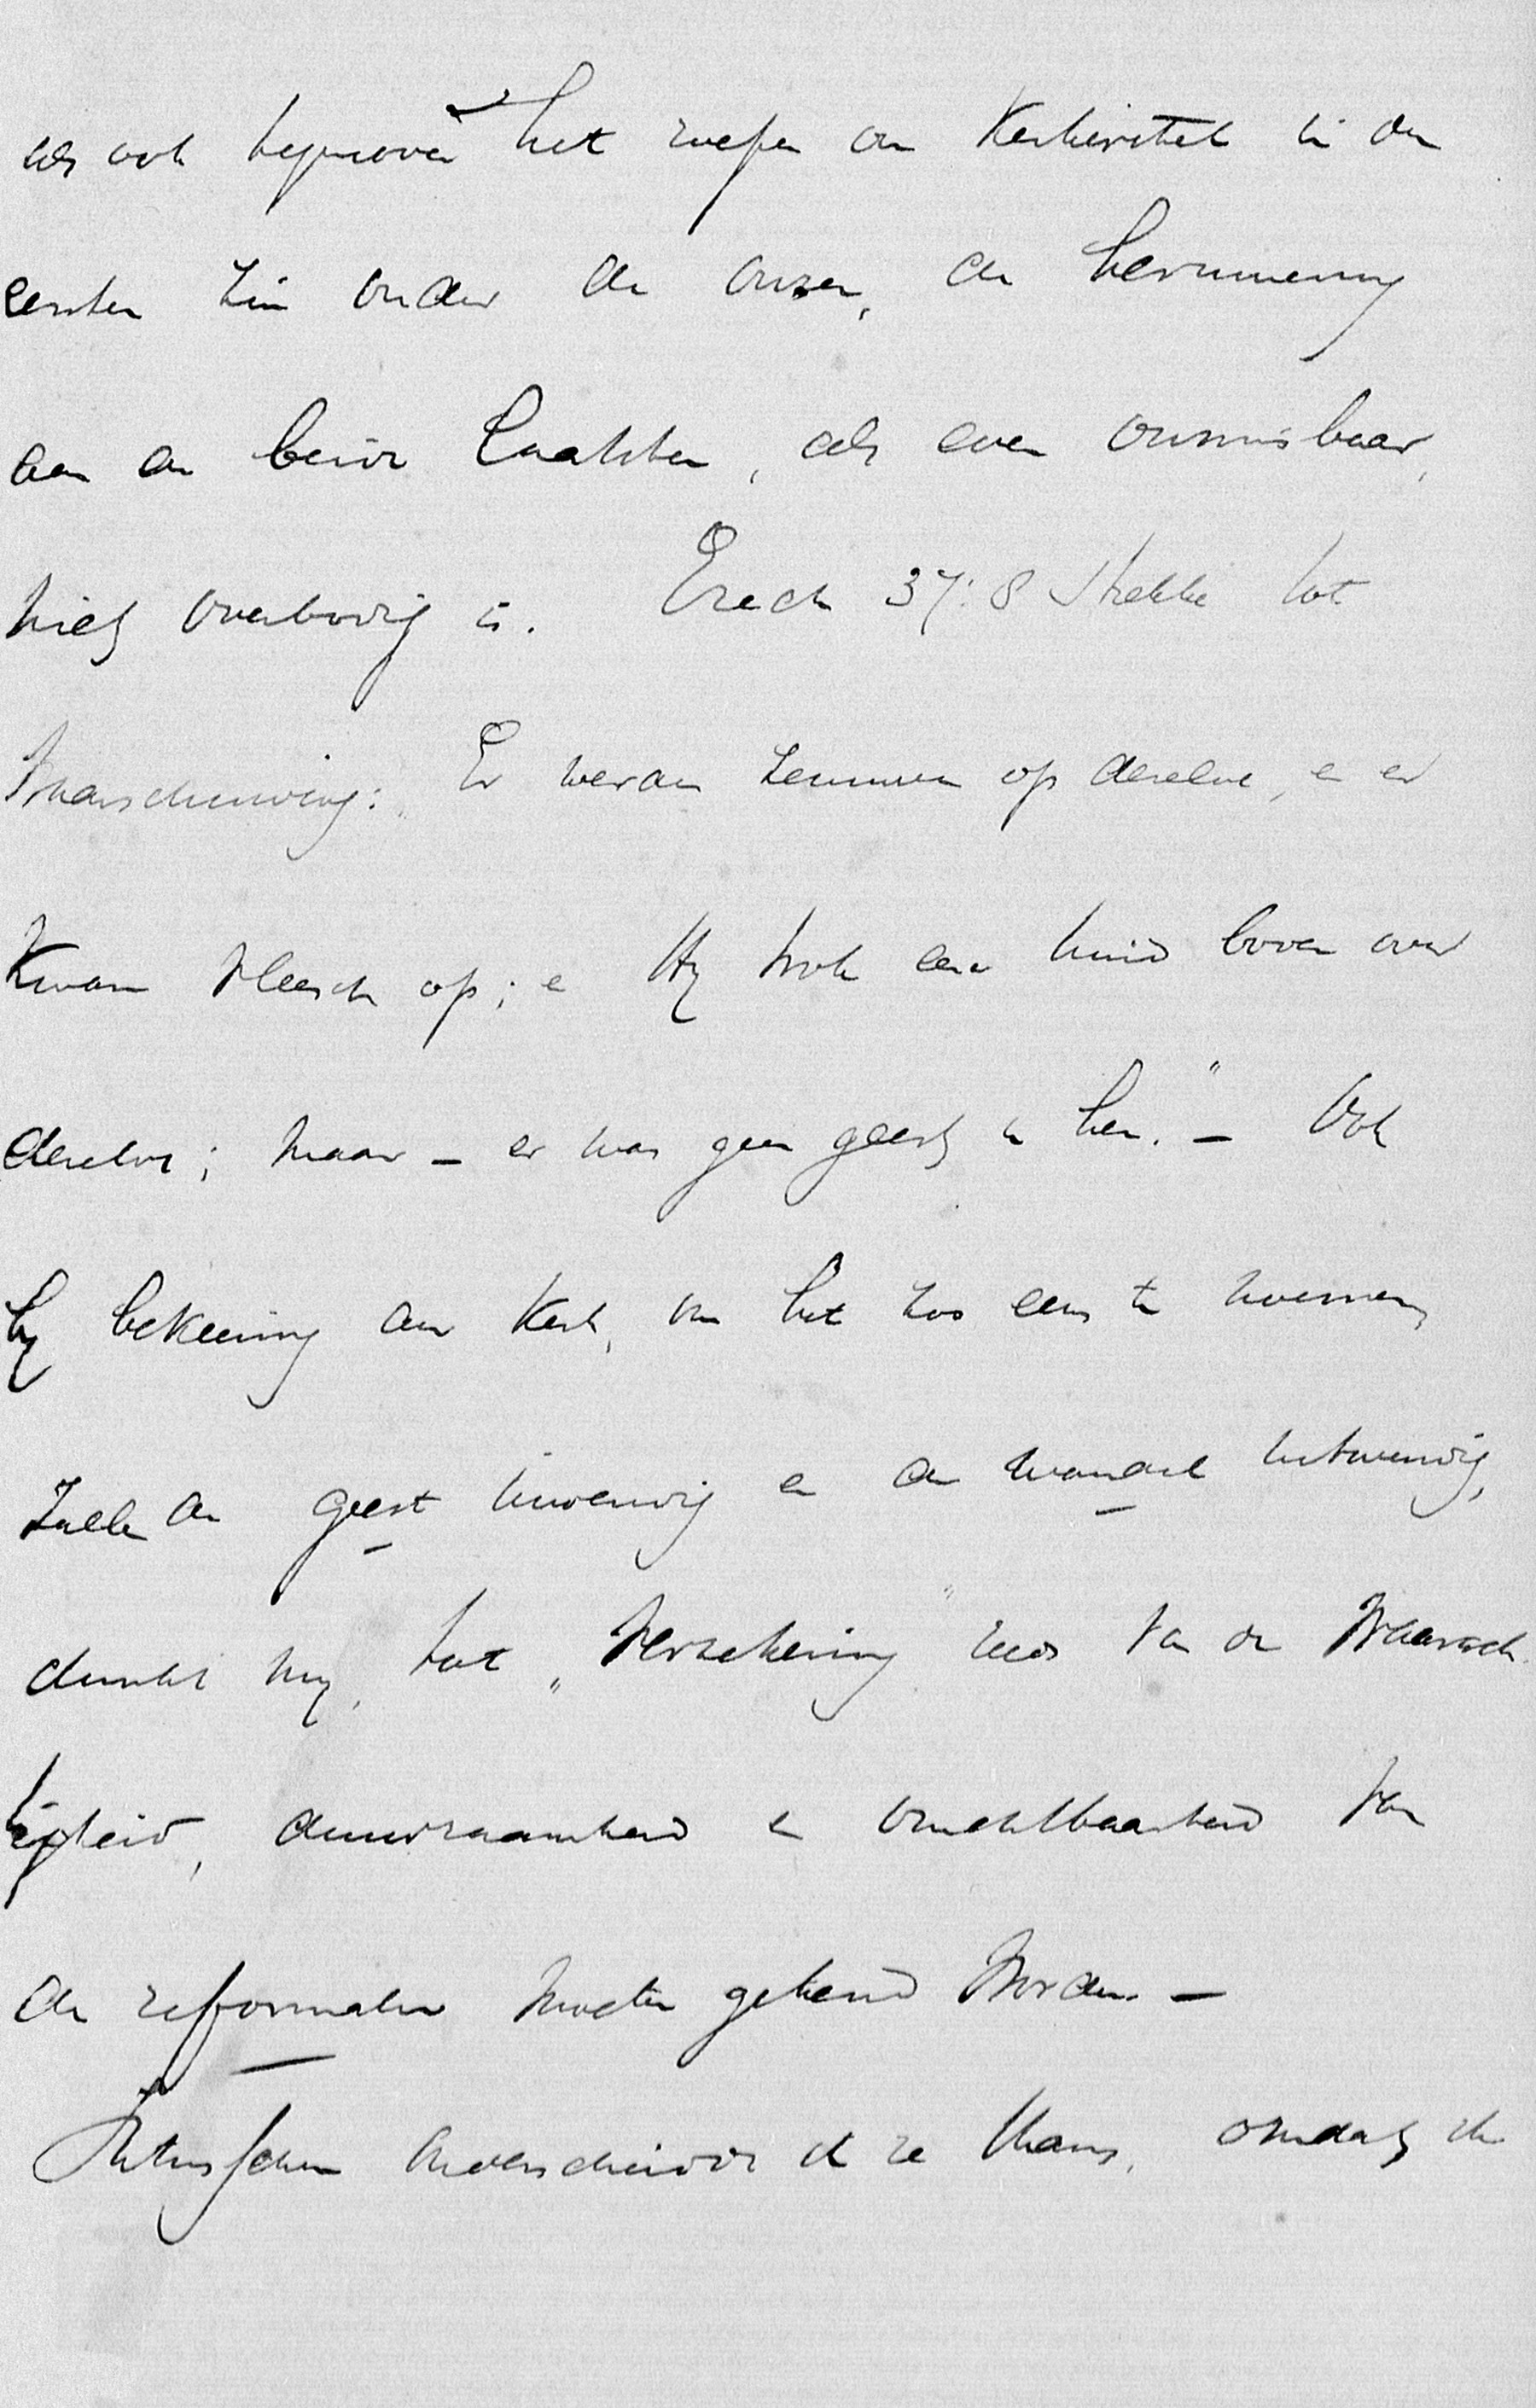 als ook tegenover het roepen om Kerkherstel in den
eersten zin onder de onzen, de herinnering
aan de beide laatsten, als even onmisbaar,
niet overbodig is. Ezech 37:8 strekke tot
Waarschuwing: Er werden zenuwen op dezelve, en er
Kwam vleesch op; en Hij trok een huid boven over
dezelve; maar – er was geen geest in hen." – Ook
bij bekeering der Kerk, om het zoo eens te noemen,
zullen de geest inwendig en de wandel uitwendig,
dunkt mij, tot „Verzekering" zoo van de Waarach-
tigheid, duurzaamheid en vruchtbaarheid van
de reformatie moeten gekend Worden. –
Intusschen onderscheidde ik ze thans, omdat ik